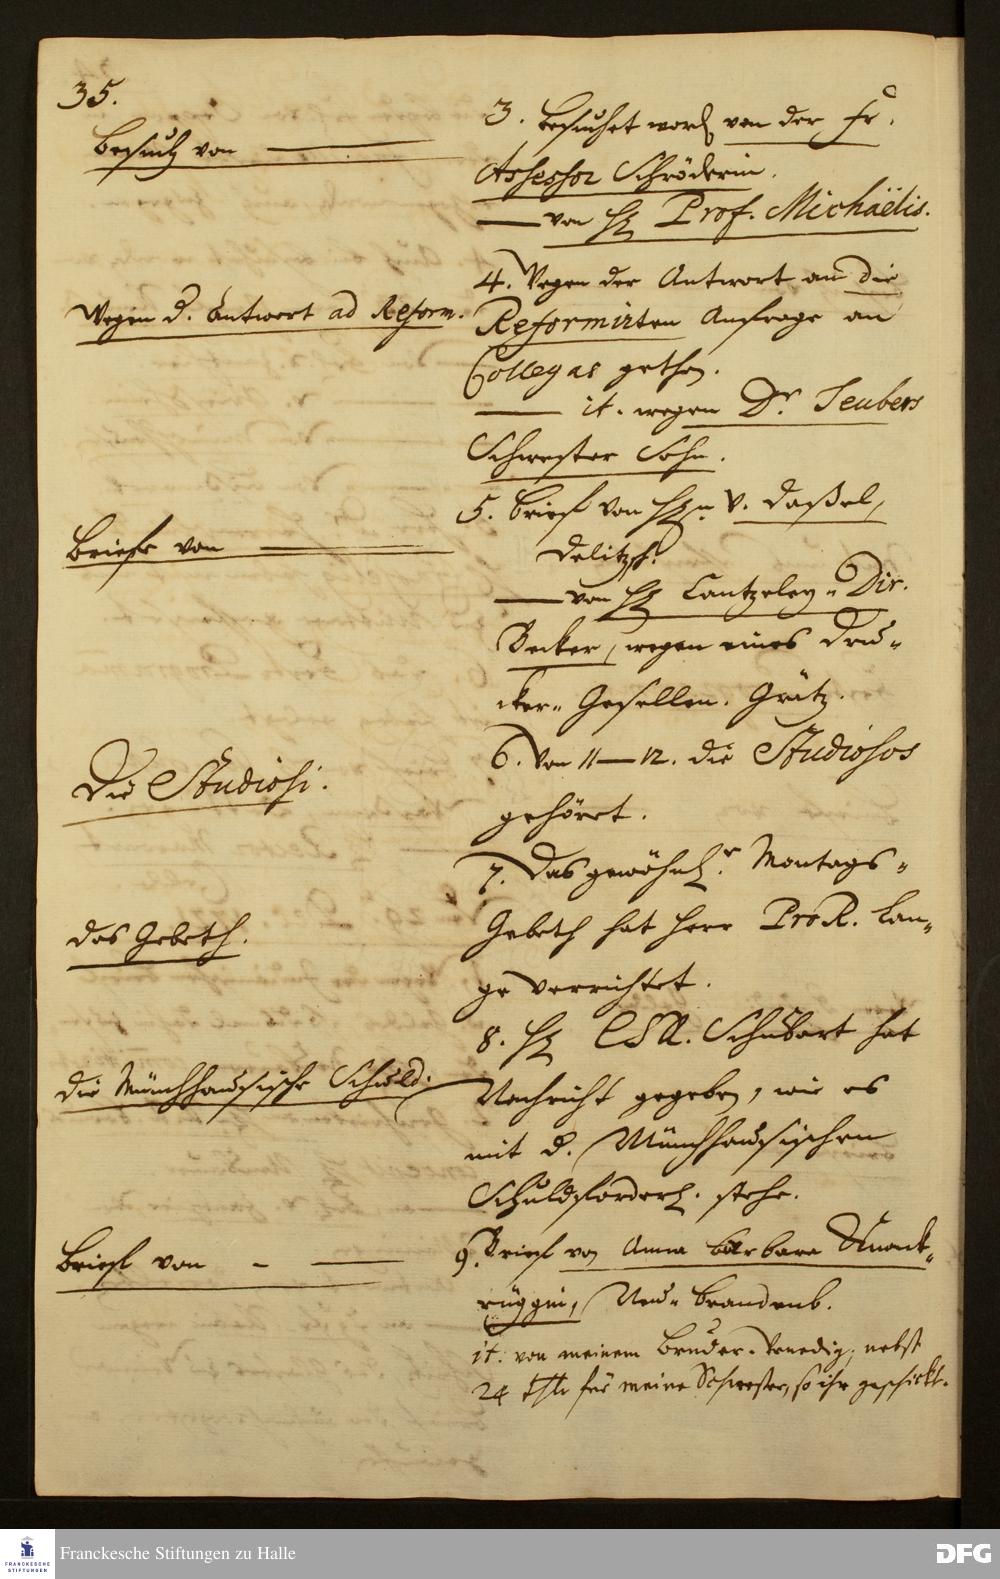 35.
Besuch von
3. besuchet word. von der Fr.
Assessor Schröderin.
von H. Prof. Michaëlis.
Wegen d. Antwort ad Reform.
4. Wegen der Antwort an die
Reformirten Anfrage an
Collegas gethan.
it. wegen Dr. Teubers
Schwester Sohn.
Briefe von
5. Brief von H. v. Daßel,
Delitzsch.
von H. Cantzeley-Dir.
Becker, wegen eines Dru-
cker-Gesellen. Grätz.
Die Studiosi.
6. Von 11-12. die Studiosos
gehöret.
das Gebeth.
7. Das gewöhnl. Montags-
Gebeth hat Herr ProR. Lan-
ge verrichtet.
die Münchhausische Schuld.
8. H. Schubart hat
Nachricht gegeben, wie es
mit d. Münchhausischen
Schuldforder. stehe.
Brief von
9. Brief von Anna Barbara
Neu-Brandenb.
it. von meinem Bruder. Venedig, nebst
24 thlr für meine Schwester, so ihr geschickt.
Franckesche Stiftungen zu Halle
FRANCKESCHE
STIFTUNGEN
DFG